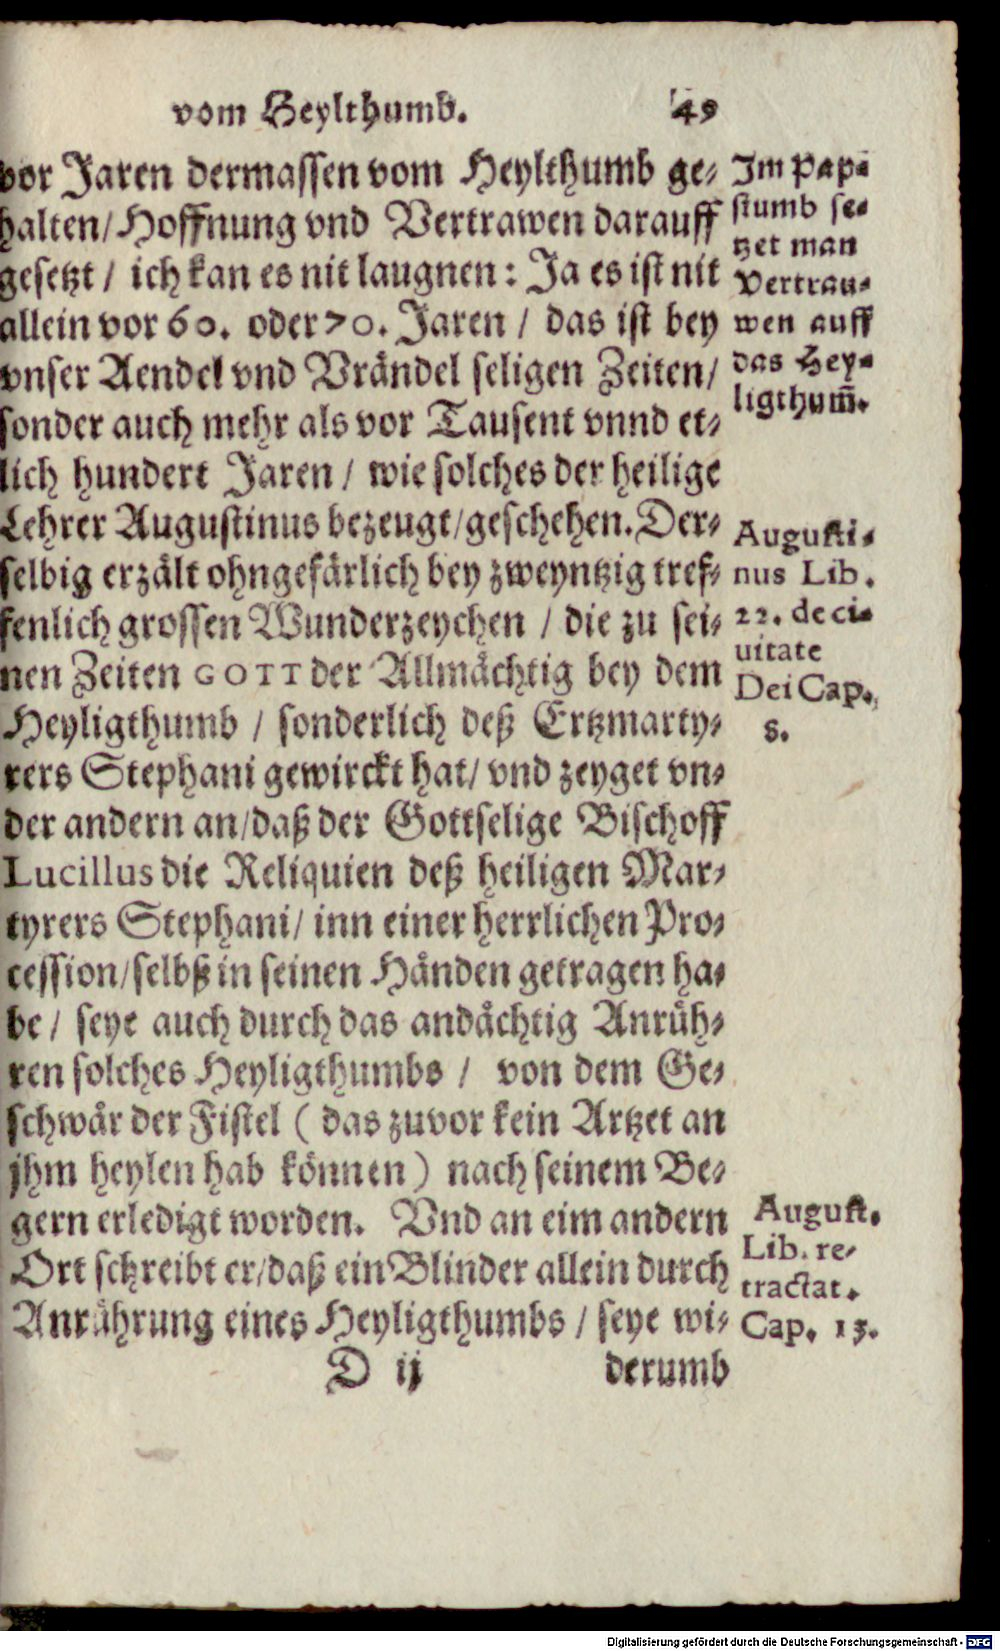 vom Heylthumb. 49
vor Jaren dermassen vom Heylthumb ge-
halten/ Hoffnung vnd Vertrawen darauff
gesetzt / ich kan es nit laugnen: Ja es ist nit
allein vor 60. oder 70. Jaren / das ist bey
vnser Aendel vnd Vrändel seligen Zeiten/
sonder auch mehr als vor Tausent vnnd et-
lich hundert Jaren / wie solches der heilige
Lehrer Augustinus bezeugt/geschehen. Der-
selbig erzält ohngefärlich bey zweyntzig tref-
fenlich grossen Wunderzeychen / die zu sei-
nen Zeiten GOTT der Allmächtig bey dem
Heyligthumb / sonderlich deß Ertzmarty-
rers Stephani gewirckt hat/ vnd zeyget vn-
der andern an/daß der Gottselige Bischoff
Lucillus die Reliquien deß heiligen Mar-
tyrers Stephani/ inn einer herrlichen Pro-
cession/selbß in seinen Händen getragen ha-
be / seye auch durch das andächtig Anrüh-
ren solches Heyligthumbs / von dem Ge-
schwär der Fistel ( das zuvor kein Artzet an
jhm heylen hab können) nach seinem Be-
gern erledigt worden. Vnd an eim andern
Ort schreibt er/daß ein Blinder allein durch
Anrührung eines Heyligthumbs / seye wi-
D ij derumb
Im Pap-
stumb se-
tzet man
Vertrau-
wen auff
das Hey-
ligthum̃.
Augusti-
nus Lib.
22. de ci-
uitate
Dei Cap.
8.
August.
Lib. re-
tractat.
Cap. 13.
Digitalisierung gefördert durch die Deutsche Forschungsgemeinschaft - DFG